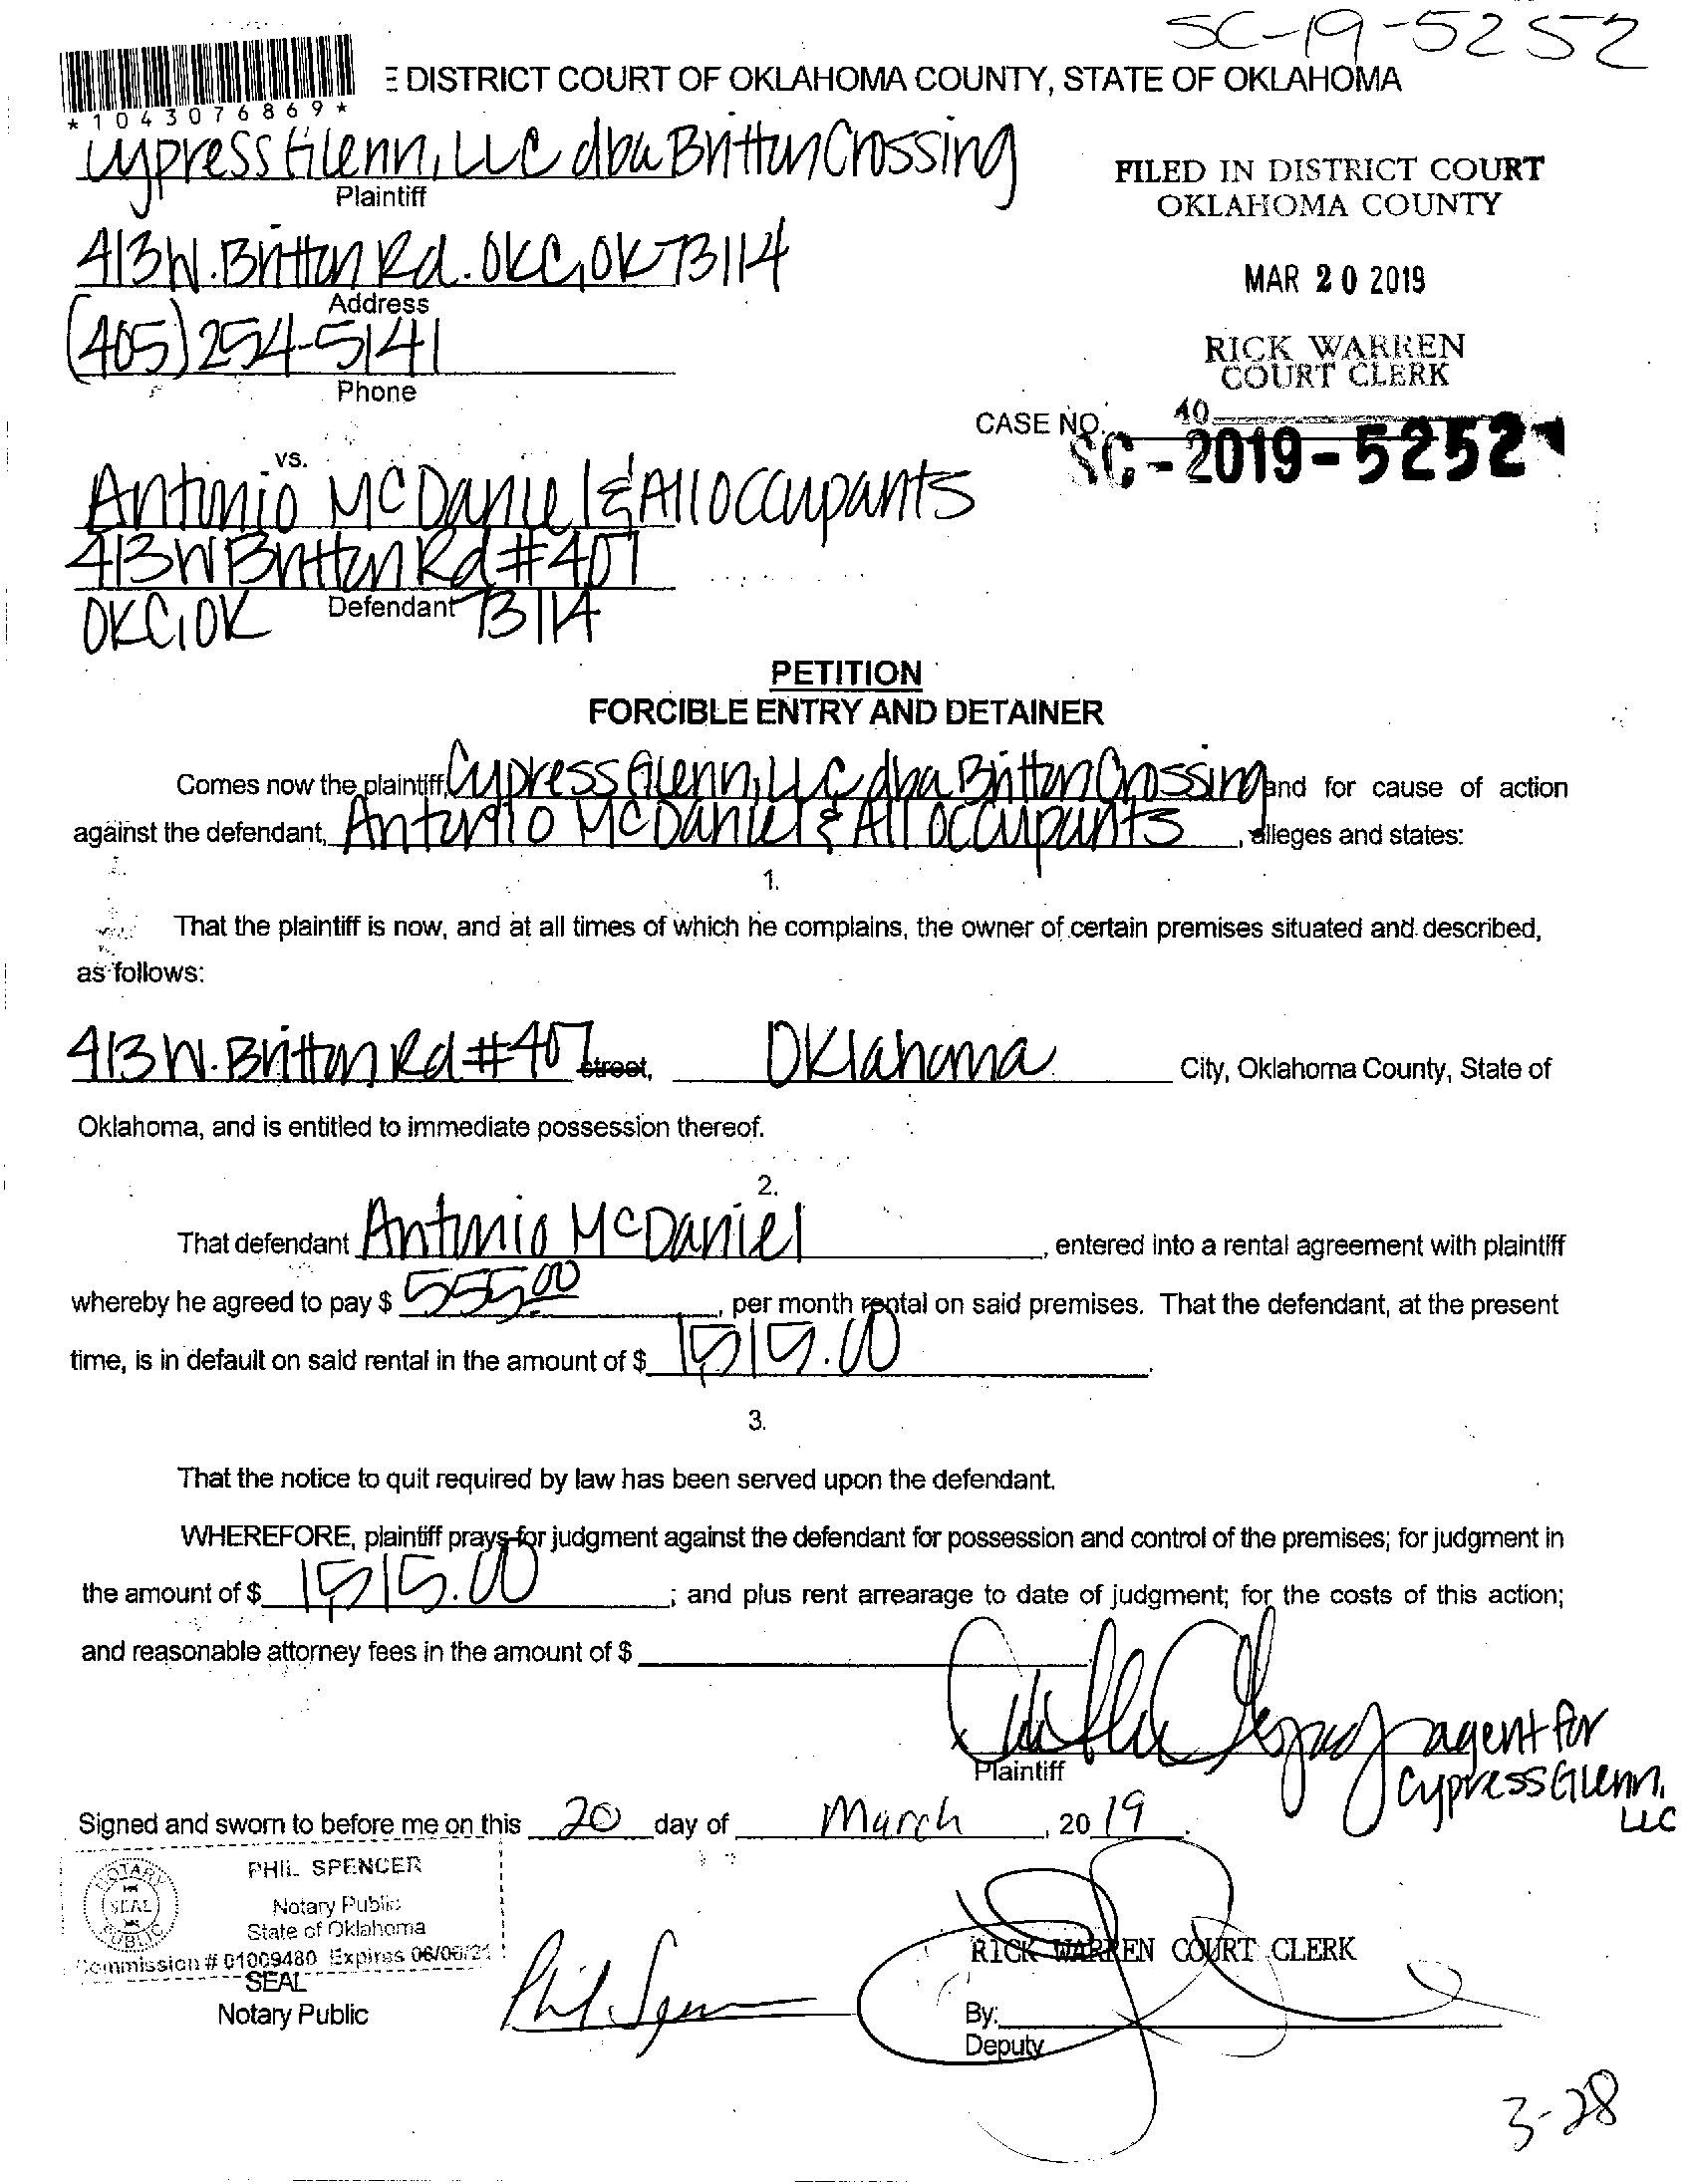 SC-19-5252
*1043076869*
E DISTRICT COURT OF OKLAHOMA COUNTY, STATE OF OKLAHOMA
Cypress Glenn, LLC dba Britton Crossing
Plaintiff
FILED IN DISTRICT COURT
OKLAHOMA COUNTY
413 W. Britton Rd. OKC, OK 73114
Address
MAR 20 2019
(405) 254-5141
Phone
RICK WARREN
COURT CLERK
40
CASE NO. SC-2019-5252
vs.
Antonio McDaniel & All occupants
413 W Britton Rd #407
OKC, OK 73114
Defendant
PETITION
FORCIBLE ENTRY AND DETAINER
Comes now the plaintiff, Cypress Glenn, LLC dba Britton Crossing and for cause of action
against the defendant, Antonio McDaniel & All occupants, alleges and states:
1.
That the plaintiff is now, and at all times of which he complains, the owner of certain premises situated and described,
as follows:
413 W. Britton Rd #407 street, Oklahoma City, Oklahoma County, State of
Oklahoma, and is entitled to immediate possession thereof.
2.
That defendant Antonio McDaniel, entered into a rental agreement with plaintiff
whereby he agreed to pay $ 555.00, per month rental on said premises. That the defendant, at the present
time, is in default on said rental in the amount of $ 1,515.00.
3.
That the notice to quit required by law has been served upon the defendant.
WHEREFORE, plaintiff prays for judgment against the defendant for possession and control of the premises; for judgment in
the amount of $ 1,515.00; and plus rent arrearage to date of judgment; for the costs of this action;
and reasonable attorney fees in the amount of $
agent for
Plaintiff
Cypress Glenn,
LLC
Signed and sworn to before me on this 20 day of March, 2019.
PHIL SPENCER
Notary Public
State of Oklahoma
Commission # 01009480 Expires 06/06/21
NOTARY PUBLIC
SEAL
SEAL
Notary Public
Phil Spencer
RICK WARREN COURT CLERK
By:
Deputy
3-28